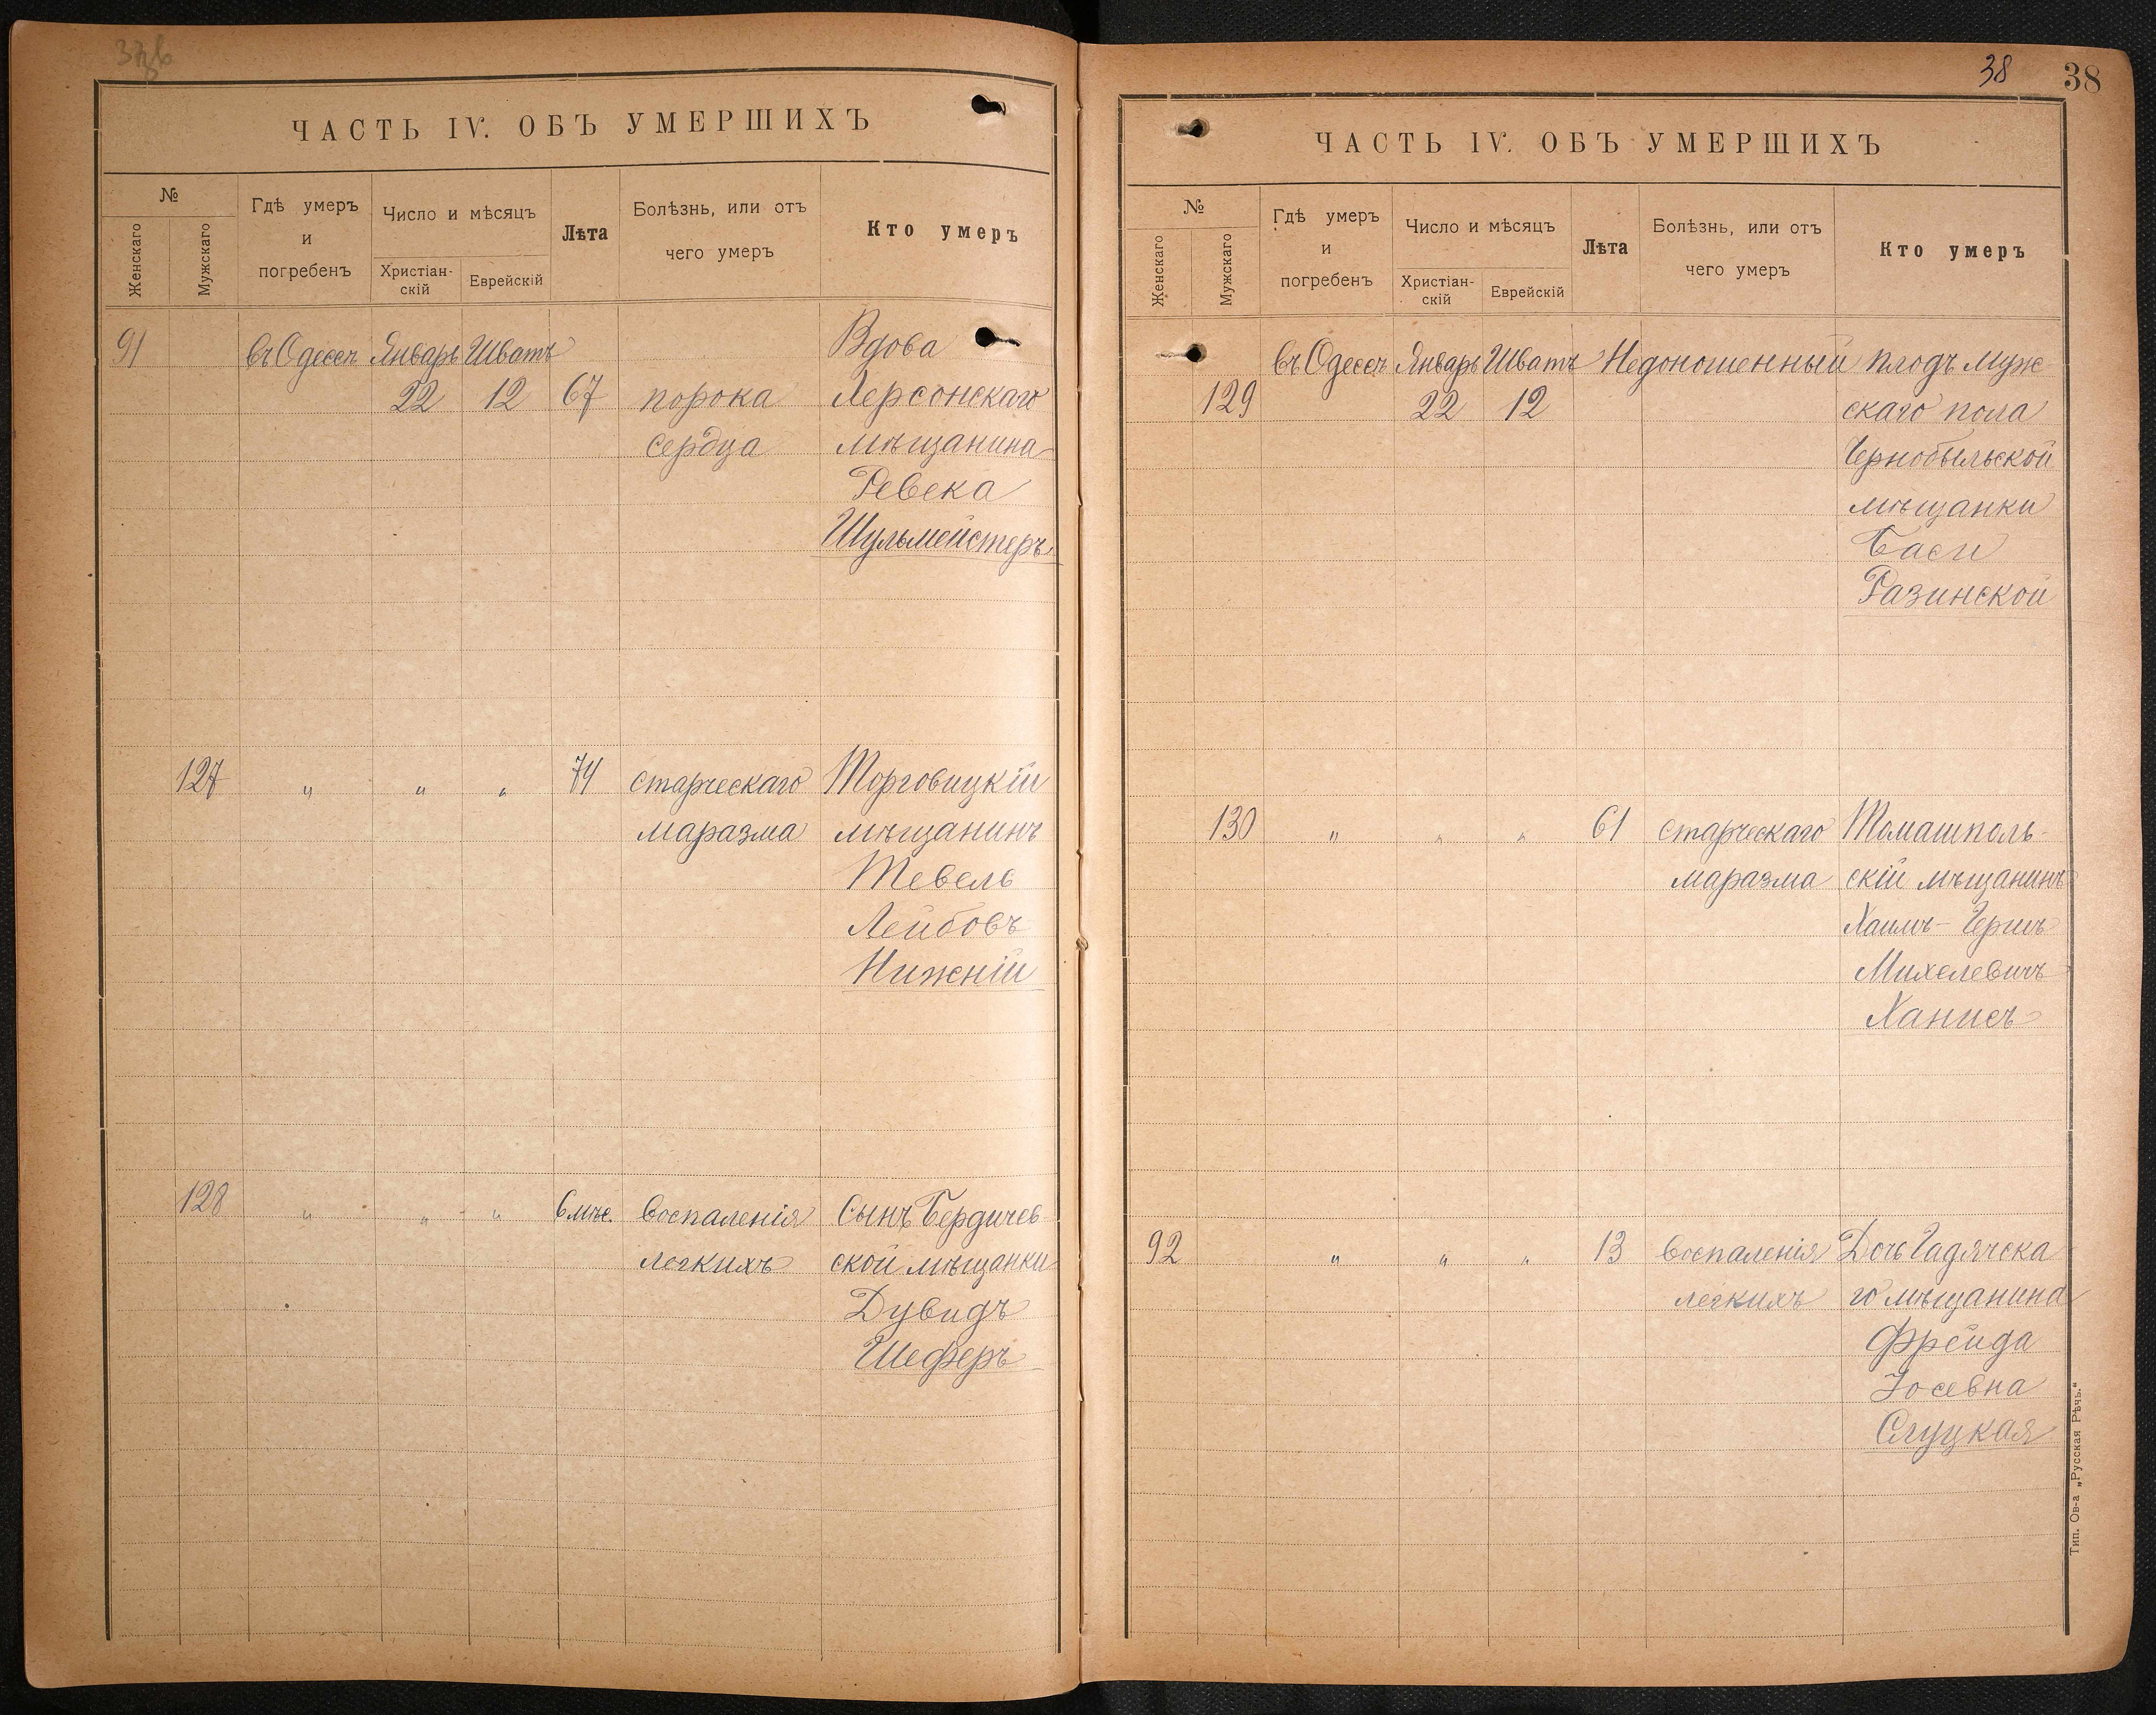 ЧАСТЬ IV. ОБЪ УМЕРШИХЪ
№
Женскаго
Мужскаго
Гдѣ умеръ
и
погребенъ
Число и мѣсяцъ
Христіан-
скій
Еврейскій
Лѣта
Болѣзнь, или отъ
чего умеръ
Кто умеръ
91 въ Одессѣ Январь Шватъ Вдова
22 12 67 порока Херсонскаго
сердца мѣщанина
Ревека
Шульмейстеръ
127 " " " 74 старческаго Торговицкій
маразма мѣщанинъ
Тевель
Лейбовъ
Нижній
128 " " " 6 мѣс. воспаленія Сынъ Бердичев-
легкихъ ской мѣщанки
Дувидъ
Шеферъ
38 38
ЧАСТЬ IV. ОБЪ УМЕРШИХЪ
№
Женскаго
Мужскаго
Гдѣ умеръ
и
погребенъ
Число и мѣсяцъ
Христіан-
скій
Еврейскій
Лѣта
Болѣзнь, или отъ
чего умеръ
Кто умеръ
въ Одессѣ Январь Шватъ Недоношенный плодъ муж
129 22 12 скаго пола
Чернобыльской
мѣщанки
Баси
Разинской
130 " " " 61 старческаго Томашполь-
маразма скій мѣщанинъ
Хаимъ-Гершъ
Михелевичъ
Ханисъ
92 " " " 13 воспаленія Дочь Гадячска
легкихъ го мѣщанина
Фрейда
Іосевна
Слуцкая
Тип. Ов-а „Русская Рѣчь.“